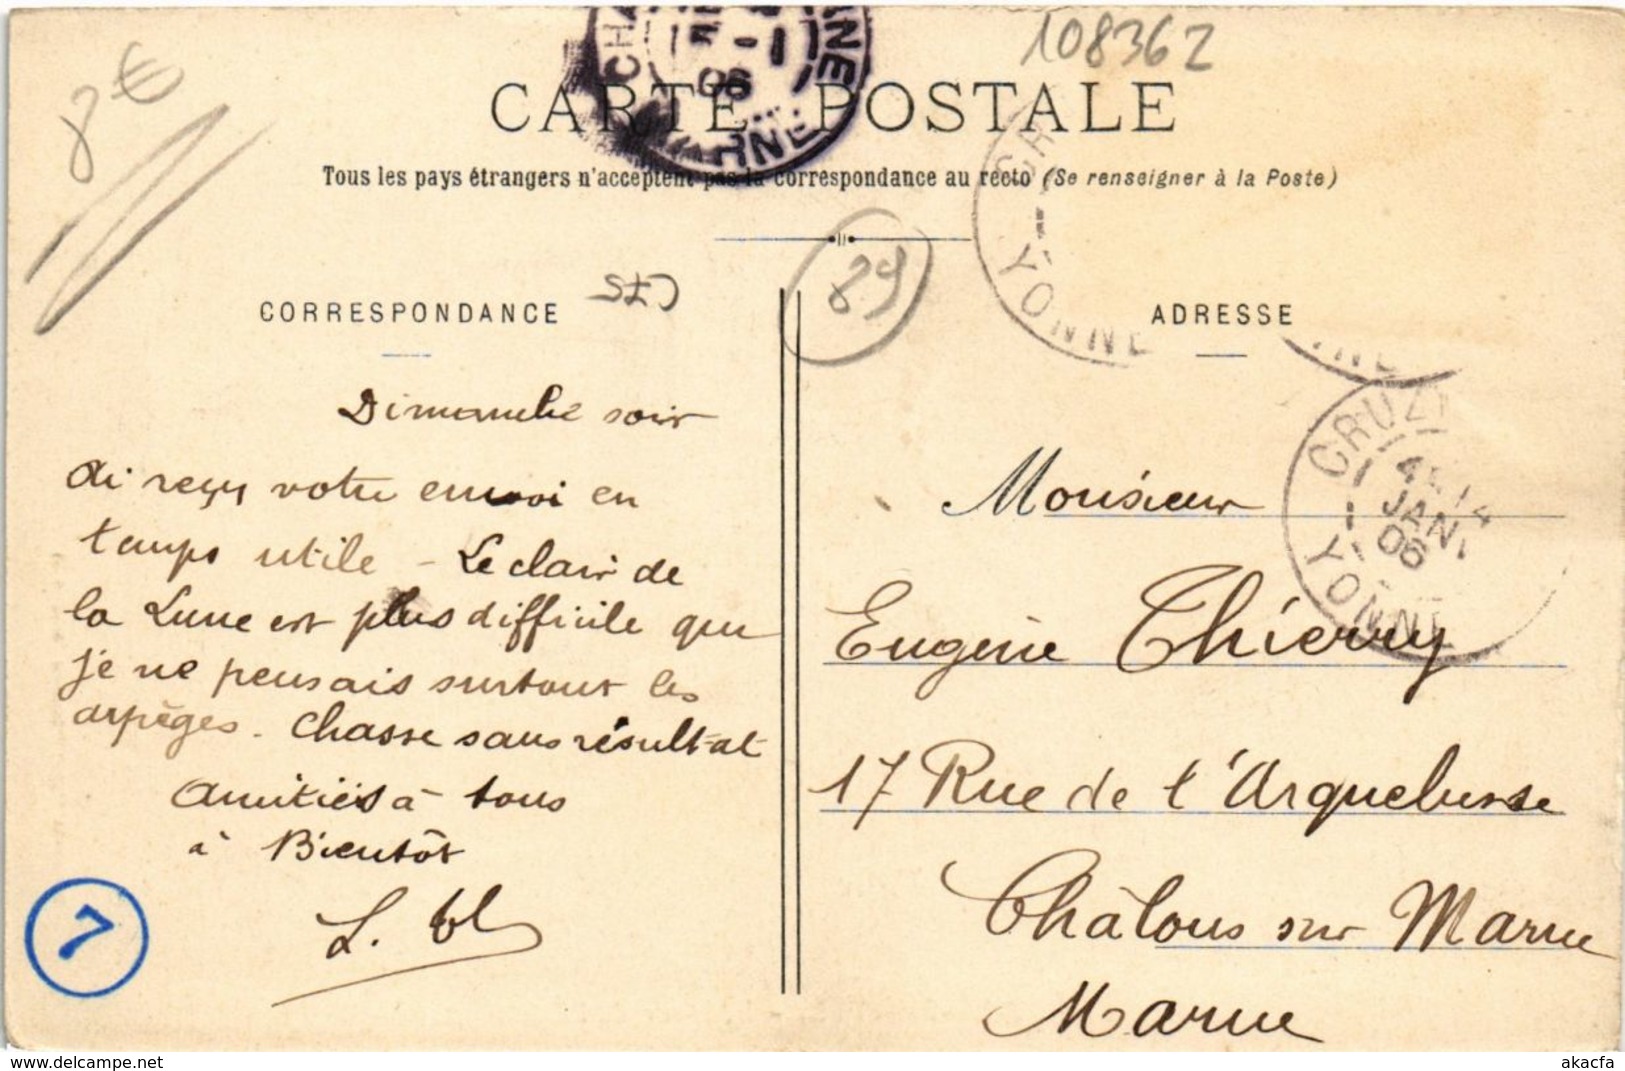 108362
8€
CARTE POSTALE
Tous les pays étrangers n'acceptent pas la correspondance au recto (Se renseigner à la Poste)
89
CORRESPONDANCE
ADRESSE
Dimanche soir
ai reçu votre envoi en
temps utile - Le clair de
la Lune est plus difficile que
je ne pensais surtout les
arpèges. Chasse sans résultat
Amitiés à tous
à Bientôt
L.
7
Monsieur
Eugène Thierry
17 Rue de l'Arquebusse
Châlons sur Marne
Marne
CR
YONNE
CRUZY
4E 14
JANV
06
YONNE
06
MARNE
akacfa